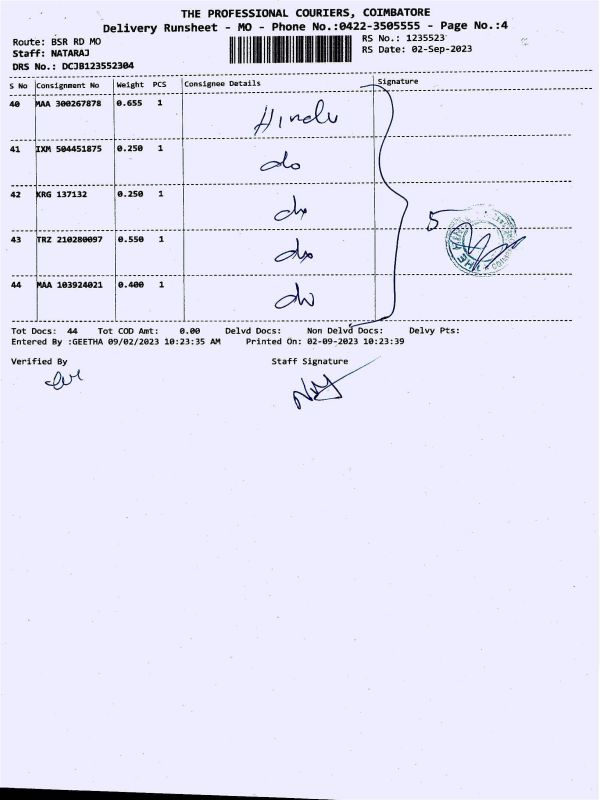 THE PROFESSIONAL COURIERS, COIMBATORE
Delivery Runsheet - MO - Phone No.:0422-3505555 - Page No.:4
Route: BSR RD MO
Staff: NATARAJ
DRS No.: DCJB123552304
RS No.: 1235523
RS Date: 02-Sep-2023
S No Consignment No Weight PCS Consignee Details Signature
40 MAA 300267878 0.655 1 Hindu
41 IXM 504451875 0.250 1 do
42 KRG 137132 0.250 1 do
43 TRZ 210280097 0.550 1 do
44 MAA 103924021 0.400 1 do
5
Tot Docs: 44 Tot COD Amt: 0.00 Delvd Docs: Non Delvd Docs: Delvy Pts:
Entered By :GEETHA 09/02/2023 10:23:35 AM Printed On: 02-09-2023 10:23:39
Verified By Staff Signature